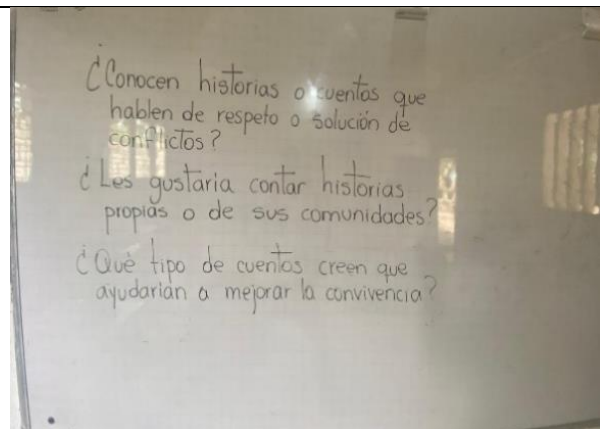 ¿Conocen historias o cuentos que
hablen de respeto o solución de
conflictos?
¿Les gustaria contar historias
propias o de sus comunidades?
¿Qué tipo de cuentos creen que
ayudarían a mejorar la convivencia?